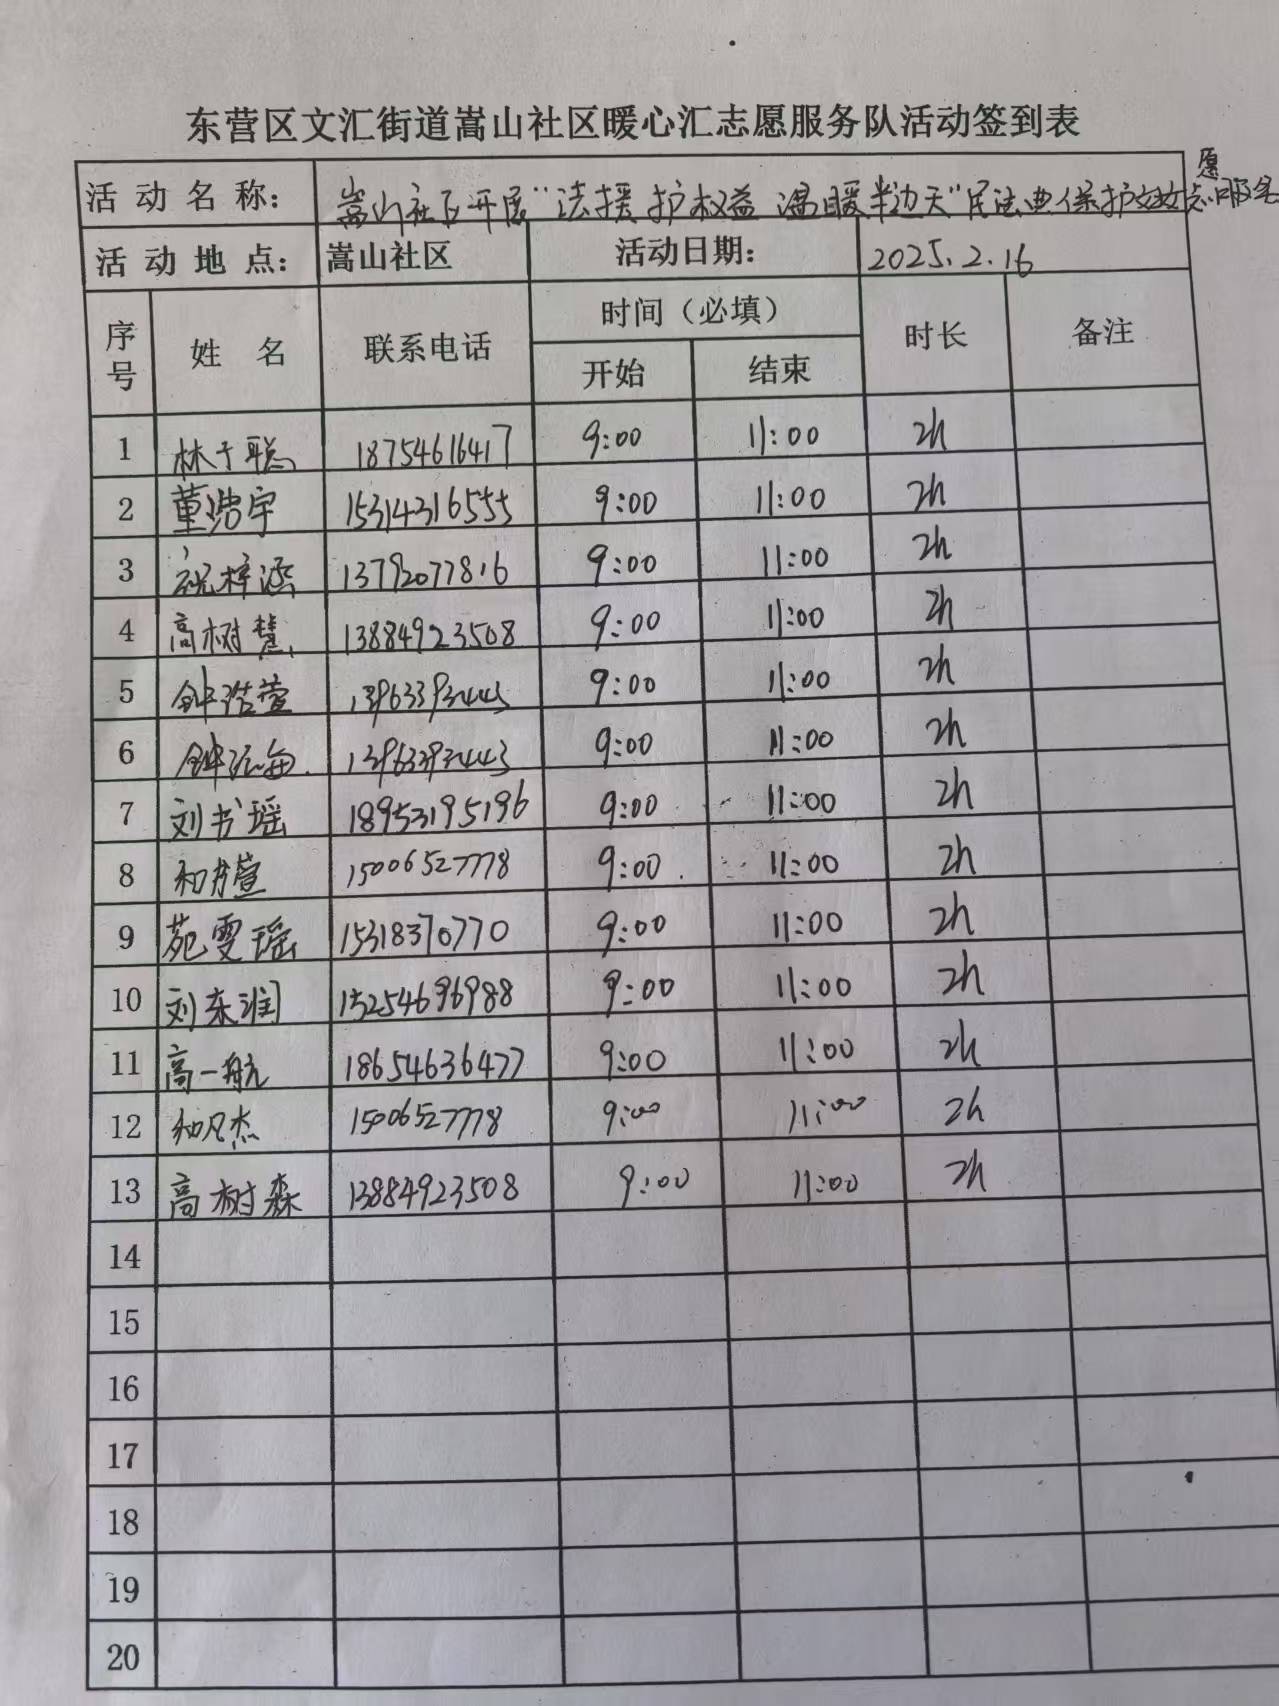 东营区文汇街道嵩山社区暖心汇志愿服务队活动签到表
活动名称： 嵩山社区开展“法援护权益 温暖半边天”民法典保护妇女志愿服务
活动地点： 嵩山社区 活动日期： 2025.2.16
序号 姓名 联系电话 时间（必填） 时长 备注
开始 结束
1 林于聪 18754616417 9:00 11:00 2h
2 董浩宇 15314316555 9:00 11:00 2h
3 祝梓涵 13792077816 9:00 11:00 2h
4 高树慧 13884923508 9:00 11:00 2h
5 钟浩萱 13963393443 9:00 11:00 2h
6 钟 13963393443 9:00 11:00 2h
7 刘书瑶 18953195196 9:00 11:00 2h
8 和月萱 15006527778 9:00 11:00 2h
9 苑雯瑶 15318370770 9:00 11:00 2h
10 刘东润 15254696988 9:00 11:00 2h
11 高一航 18654636477 9:00 11:00 2h
12 和凡杰 15006527778 9:00 11:00 2h
13 高树森 13884923508 9:00 11:00 2h
14
15
16
17
18
19
20